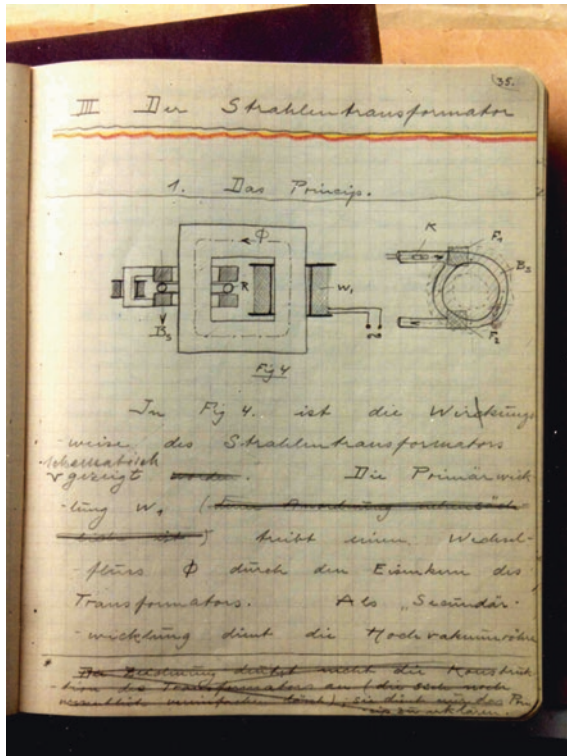 35.
III Der Strahlentransformator
1. Das Princip.
Φ
K
F₁
B₃
R
W₁
B₃
F₂
Fig 4
In Fig 4. ist die Wirkungs
-weise des Strahlentransformators
schematisch
gezeigt worden. Die Primärwick-
-lung W₁ (
) treibt einen Wechsel-
-fluss Φ durch den Eisenkern des
Transformators. Als „Secundär-
-wicklung dient die Hochvakuumröhre
Die Zeichnung deutet nicht die Konstruk-
-tion des Transformators an (die sich noch
), sie dient nur das Prin-
cip zu erklären.